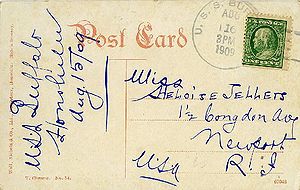 Post Card
U. S. S. BUFFALO
AUG
16
3PM
1909
USS Buffalo
Honolulu
Aug 15/09
Miss
Heloise Jellets
1½ Congdon Ave
Newport
R. I
USA